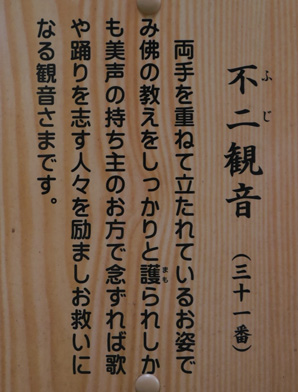 不二観音（三十一番）
ふじ
両手を重ねて立たれているお姿で
み佛の教えをしっかりと護られしか
まも
も美声の持ち主のお方で念ずれば歌
や踊りを志す人々を励ましお救いに
なる観音さまです。